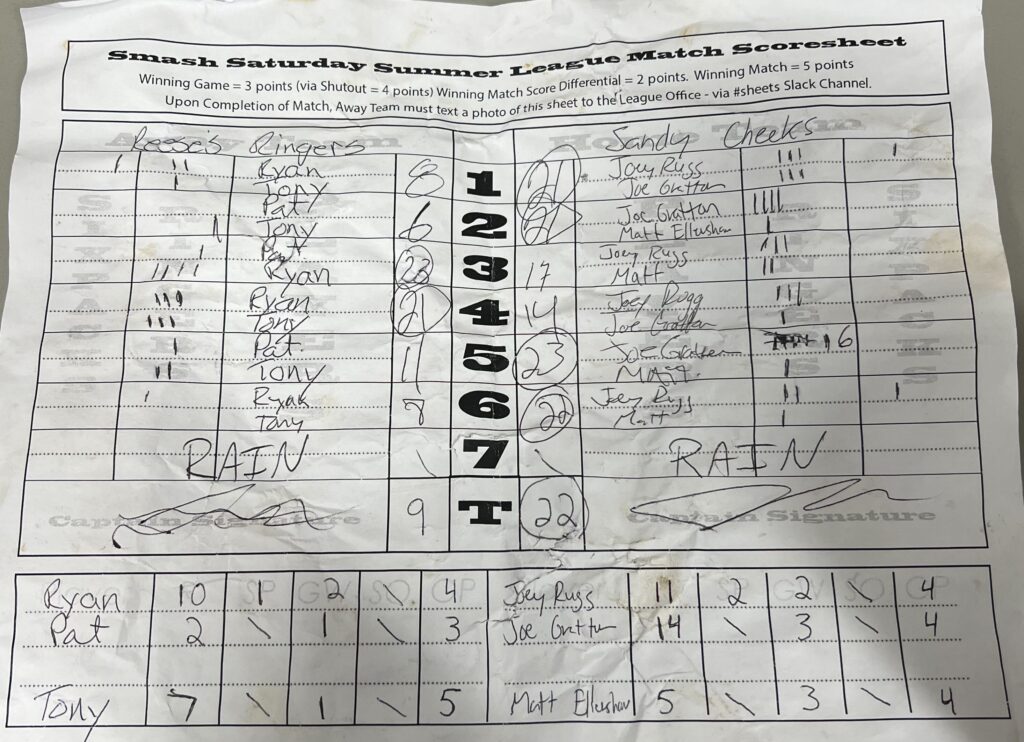 Smash Saturday Summer League Match Scoresheet
Winning Game = 3 points (via Shutout = 4 points) Winning Match Score Differential = 2 points. Winning Match = 5 points
Upon Completion of Match, Away Team must text a photo of this sheet to the League Office - via #sheets Slack Channel.
Reese's Ringers Sandy Cheeks
Ryan 8 1 21 Joey Rugg
Tony Joe Gratton
Pat 6 2 21 Joe Gratton
Tony Matt Ellushan
Pat 23 3 17 Joey Rugg
Ryan Matt
Ryan 21 4 14 Joey Rugg
Tony Joe Gratton
Pat 11 5 23 Joe Gratton 6
Tony Matt
Ryan 8 6 22 Joey Rugg
Tony Matt
RAIN \ 7 \ RAIN
Captain Signature 9 T 22 Captain Signature
Ryan 10 1 2 \ 4 Joey Rugg 11 2 2 \ 4
Pat 2 \ 1 \ 3 Joe Gratton 14 \ 3 \ 4
Tony 7 \ 1 \ 5 Matt Ellushan 5 \ 3 \ 4